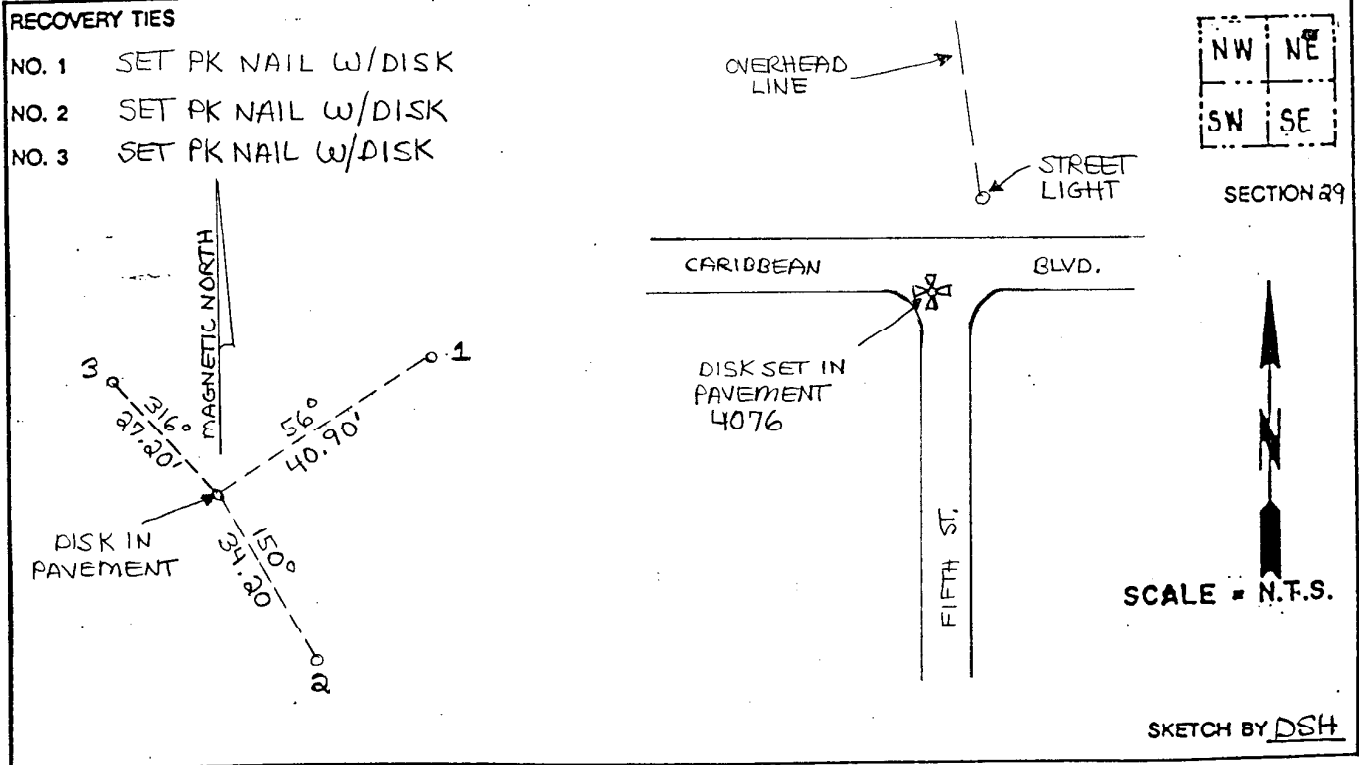 RECOVERY TIES
NO. 1 SET PK NAIL W/DISK
NO. 2 SET PK NAIL W/DISK
NO. 3 SET PK NAIL W/DISK
MAGNETIC NORTH
3
316°
27.20'
1
56°
40.90'
150°
34.20
2
DISK IN
PAVEMENT
OVERHEAD
LINE
STREET
LIGHT
CARIBBEAN BLVD.
DISK SET IN
PAVEMENT
4076
FIFTH ST.
NW NE
SW SE
SECTION 29
N
SCALE = N.T.S.
SKETCH BY DSH